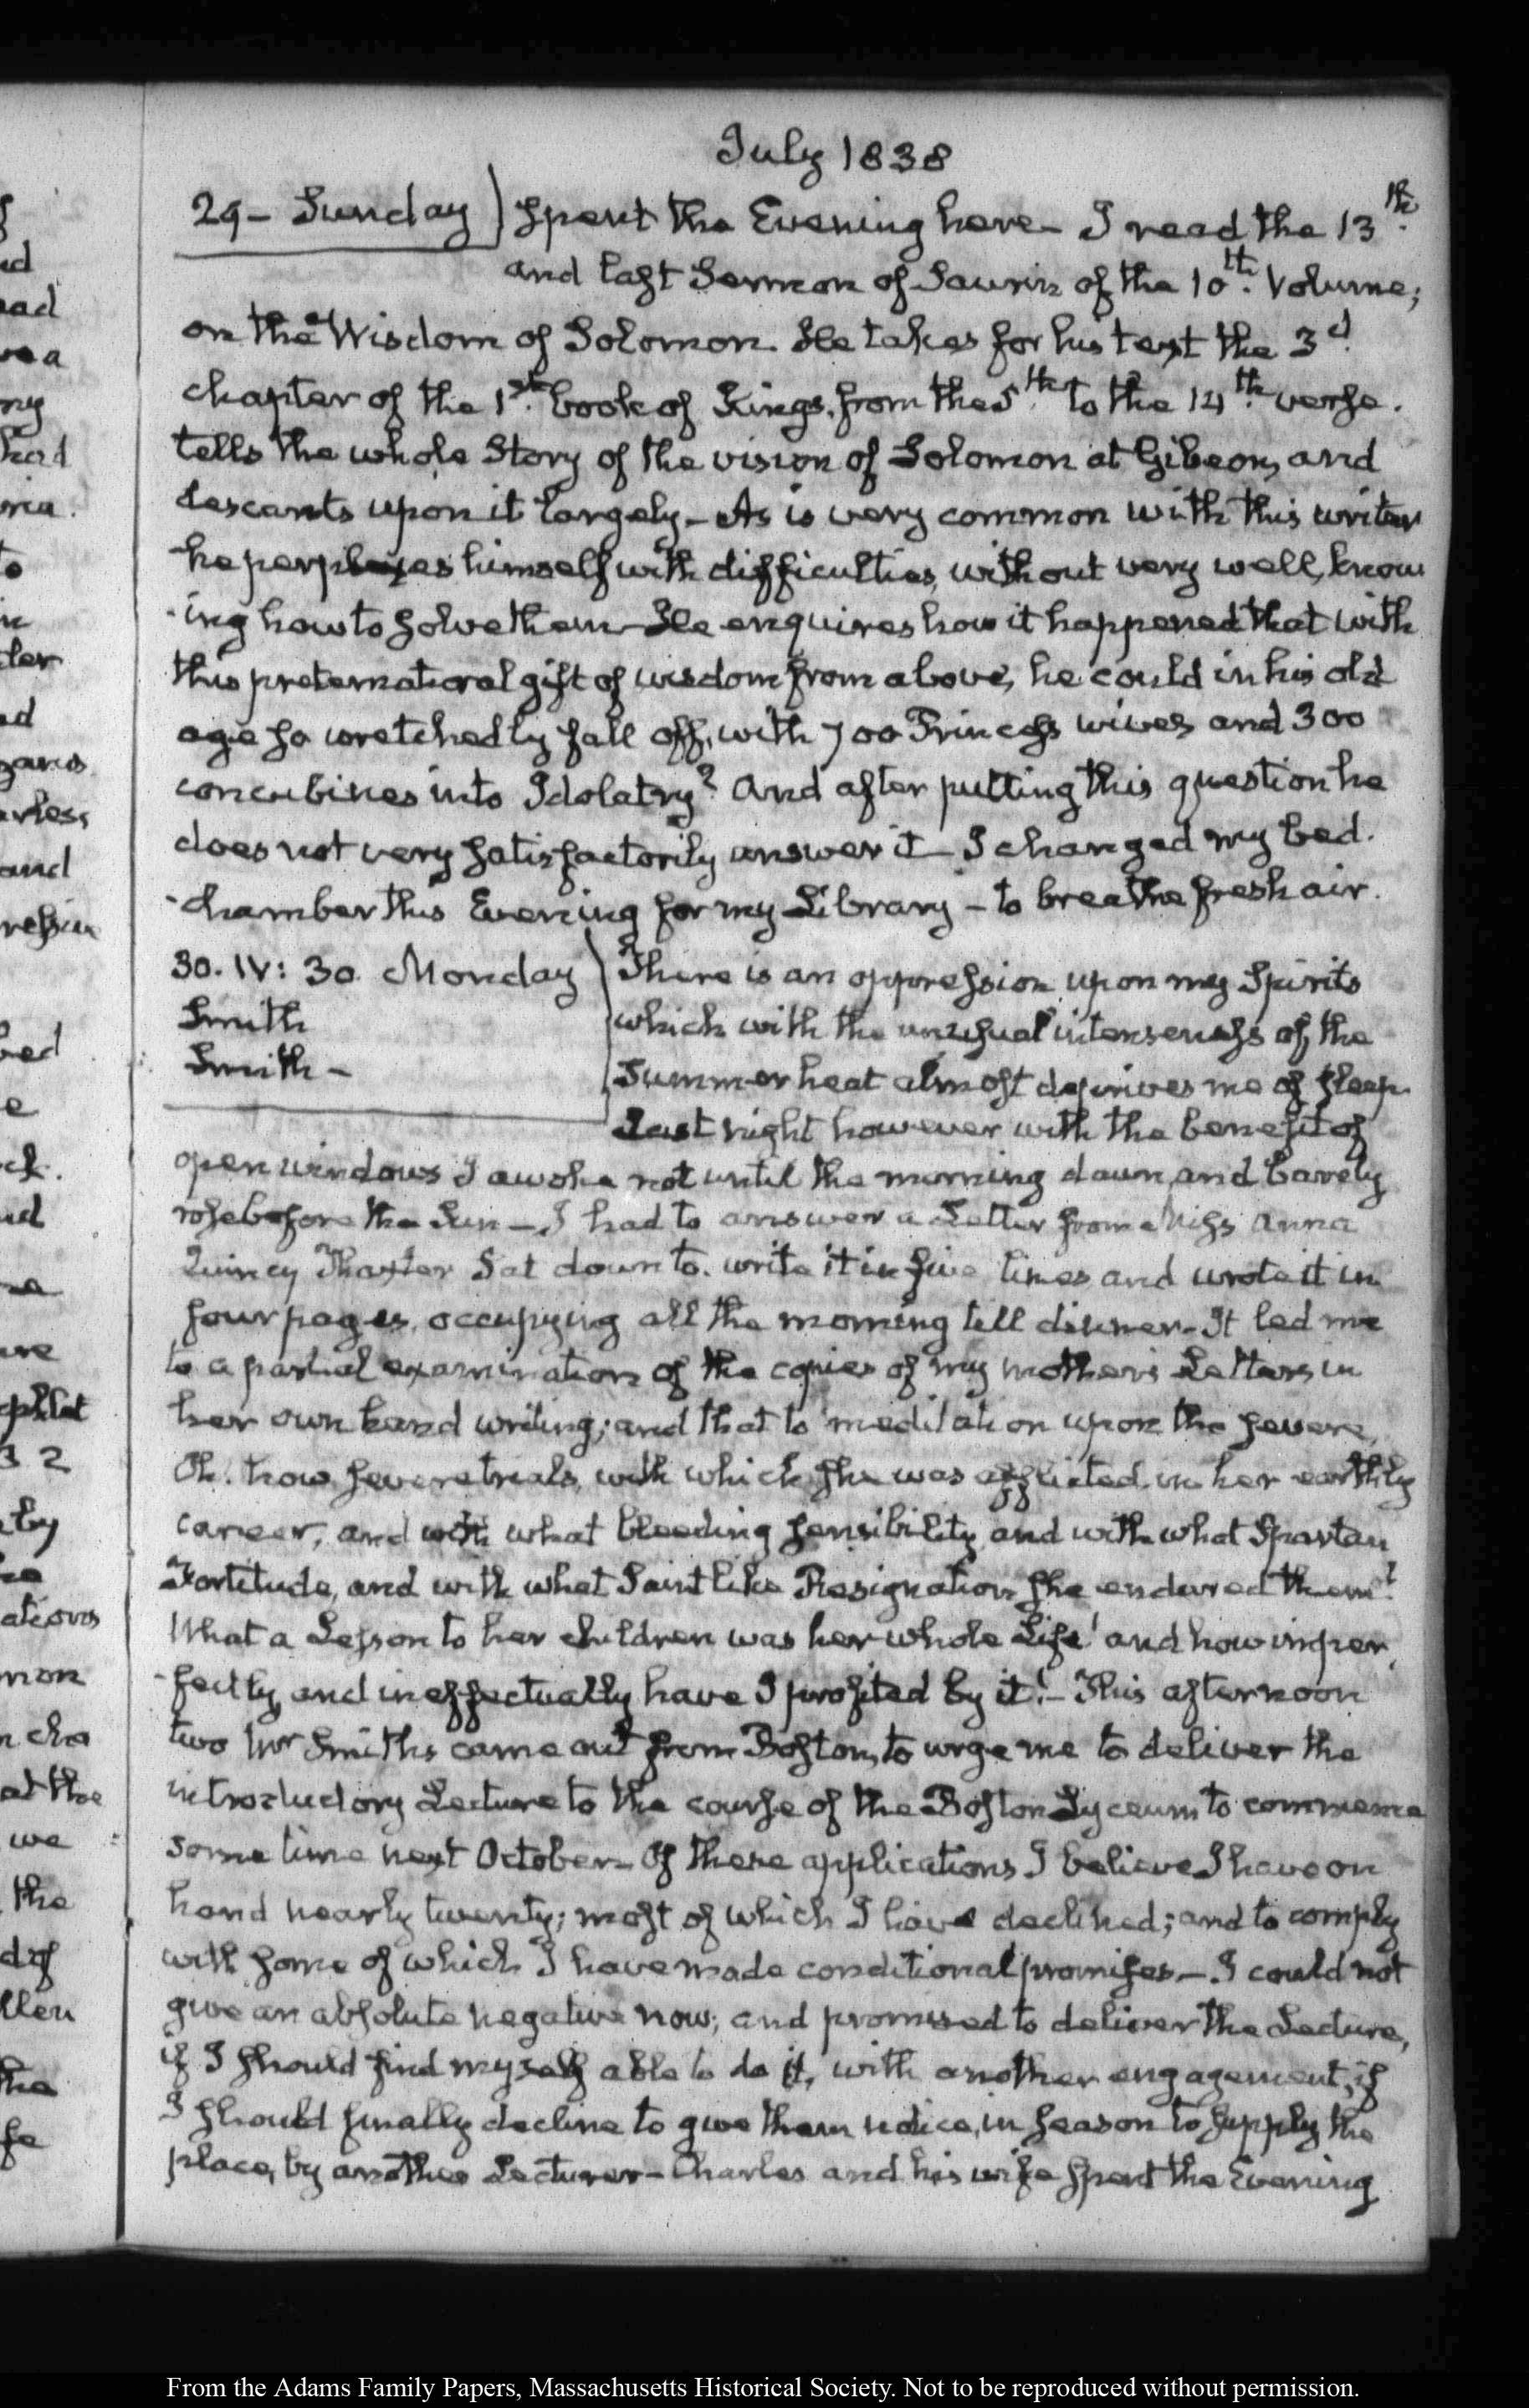 July 1838
29 - Sunday) Spent the Evening here - I read the 13th.
and last Sermon of Saurin of the 10th. Volume;
on the Wisdom of Solomon. He takes for his text the 3d.
chapter of the 1st. book of Kings, from the 5th. to the 14th. verse.
tells the whole Story of the vision of Solomon at Gibeon, and
descants upon it largely - As is very common with this writer
he perplexes himself with difficulties, without very well know
-ing how to solve them - He enquires how it happened that with
this preternatural gift of wisdom from above, he could in his old
age so wretchedly fall off, with 700 Princess wives and 300
concubines into Idolatry? And after putting this question he
does not very satisfactorily answer it - I changed my bed.
-chamber this Evening for my Library - to breathe fresh air.
30. IV: 30. Monday) There is an oppression upon my Spirits
Smith which with the unusual intenseness of the
Smith - Summer heat almost deprives me of sleep.
Last night however with the benefit of
open windows I awoke not until the morning dawn, and barely
rose before the Sun - I had to answer a Letter from Miss Anna
Quincy Thaxter Sat down to write it in five lines and wrote it in
four pages, occupying all the morning till dinner - It led me
to a partial examination of the copies of my mother's Letters in
her own hand writing; and that to meditation upon the severe,
Oh. how severe trials, with which she was afflicted in her earthly
career, and with what bleeding sensibility, and with what Spartan
Fortitude, and with what Saint like Resignation she endured them!
What a Lesson to her children was her whole Life! and how imper
-fectly and ineffectually have I profited by it! - This afternoon
two Mr Smiths came out from Boston, to urge me to deliver the
introductory Lecture to the course of the Boston Lyceum to commence
some time next October - Of these applications I believe I have on
hand nearly twenty; most of which I have declined; and to comply
with some of which I have made conditional promises - I could not
give an absolute negative now; and promised to deliver the Lecture,
if I should find myself able to do it, with another engagement, if
I should finally decline to give them notice, in season to supply the
place, by another Lecturer - Charles and his wife spent the Evening
From the Adams Family Papers, Massachusetts Historical Society. Not to be reproduced without permission.